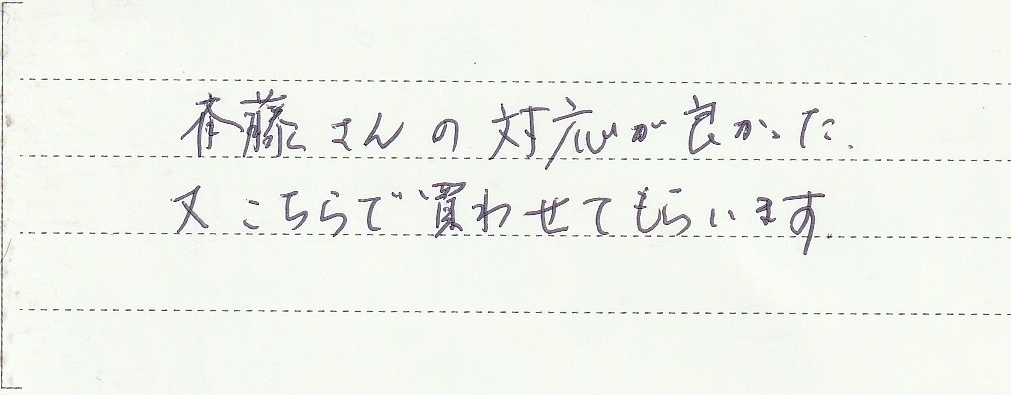 斉藤さんの対応が良かった.
又こちらで買わせてもらいます.